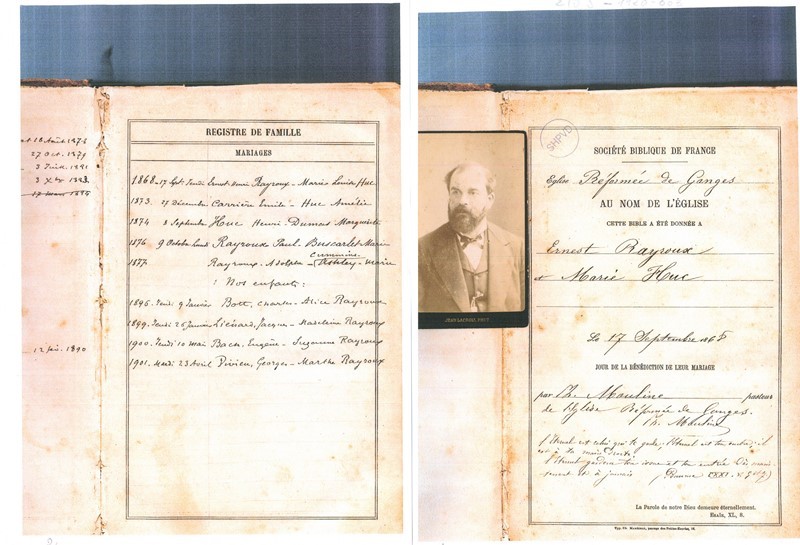 16 Août 1873
27 Oct. 1879
3 Juil. 1881
3 Xbre 1883
17 mars 1885
12 fév. 1890
REGISTRE DE FAMILLE
MARIAGES
1868 - 17 Sept. Jeudi Ernest-Henri Rayroux - Marie Louise Huc
1873. 27 Décembre Carrière Emile - Huc Amélie
1874 8 Septembre Huc Henri - Dumas Marguerite
1876 9 Octobre Lundi Rayroux Paul. Buscarlet Marie
1877. Rayroux - Adolphe - Cumming Ashley - Marie
Nos enfants:
1896. Jeudi 9 Janvier Bott, Charles - Alice Rayroux
1899. Jeudi 26 Janvier Liénard, Jacques - Madeleine Rayroux
1900. Jeudi 10 Mai Bach, Eugène - Suzanne Rayroux
1901. Mardi 23 Avril Vivien, Georges - Marthe Rayroux
SHPVD
SOCIÉTÉ BIBLIQUE DE FRANCE
Eglise Réformée de Ganges
AU NOM DE L'ÉGLISE
CETTE BIBLE A ÉTÉ DONNÉE A
Ernest Rayroux
et Marie Huc
Le 17 Septembre 1868
JOUR DE LA BÉNÉDICTION DE LEUR MARIAGE
par Ch. Mouline pasteur
de l'Eglise Réformée de Ganges.
Ch. Mouline
l'Eternel est celui qui te garde; l'Eternel est ton ombre; il
est à ta main droite
l'Eternel gardera ton issue et ton entrée dès maintenant
et à jamais (Psaume CXXI.
La Parole de notre Dieu demeure éternellement.
Esaïe, XL, 8.
JEAN LACROIX PHOT.